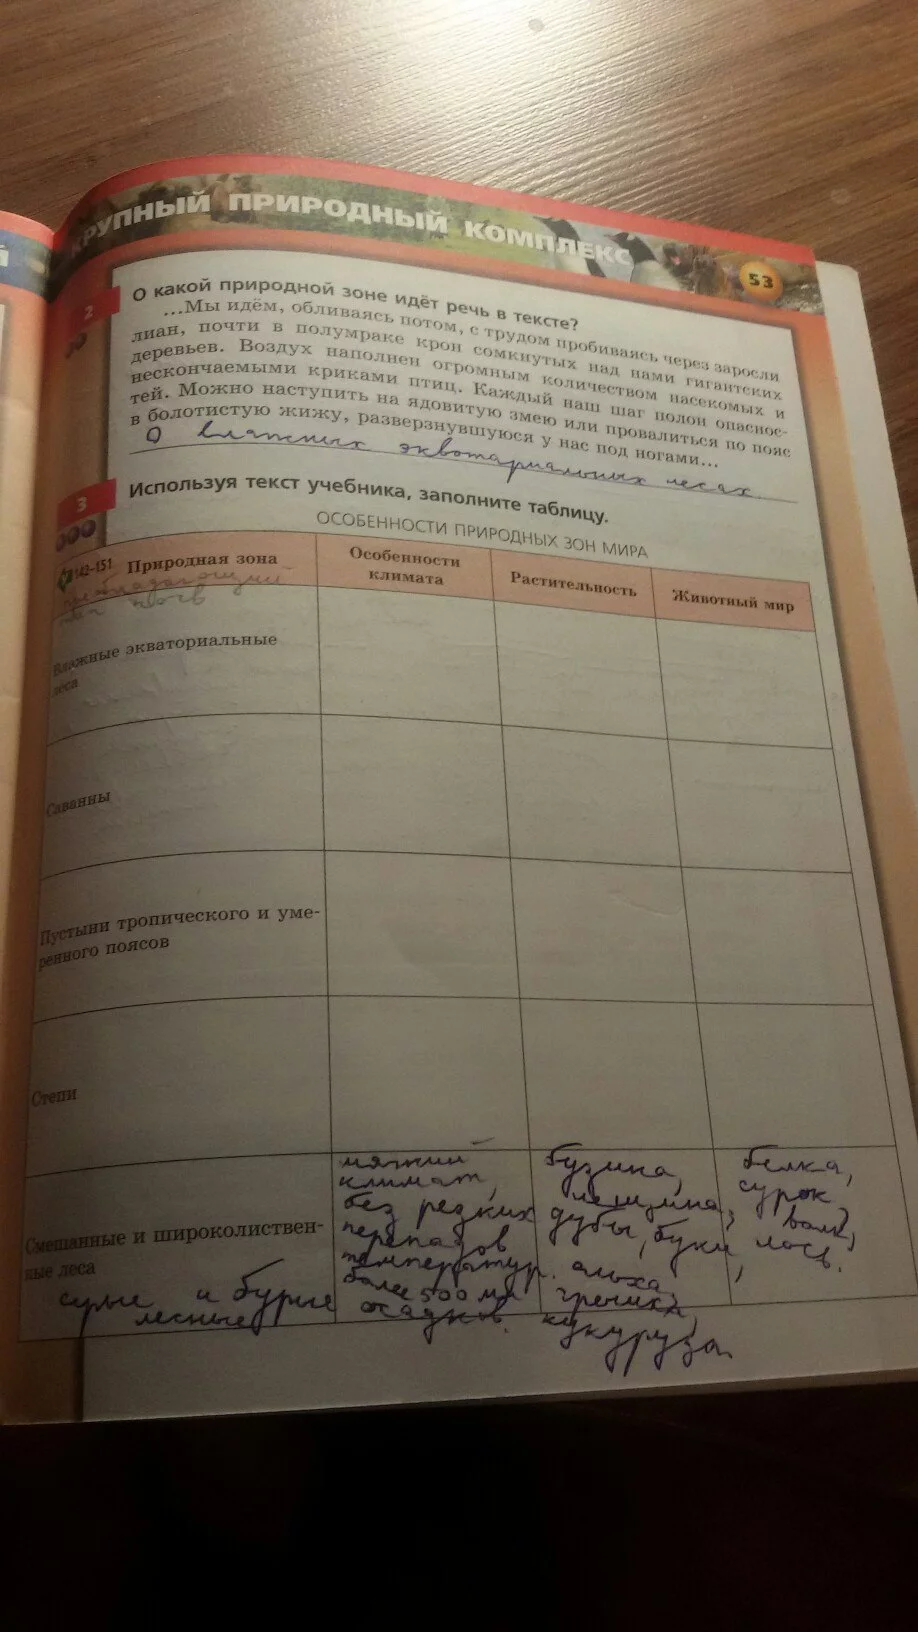 Й
КРУПНЫЙ ПРИРОДНЫЙ КОМПЛЕКС
53
2
О какой природной зоне идёт речь в тексте?
...Мы идём, обливаясь потом, с трудом пробиваясь через заросли
лиан, почти в полумраке крон сомкнутых над нами гигантских
деревьев. Воздух наполнен огромным количеством насекомых и
нескончаемыми криками птиц. Каждый наш шаг полон опаснос-
тей. Можно наступить на ядовитую змею или провалиться по пояс
в болотистую жижу, разверзнувшуюся у нас под ногами...
О влажных экваториальных лесах.
3
Используя текст учебника, заполните таблицу.
ОСОБЕННОСТИ ПРИРОДНЫХ ЗОН МИРА
142–151 Природная зона
преобладающий
тип почв
Особенности
климата
Растительность
Животный мир
Влажные экваториальные
леса
Саванны
Пустыни тропического и уме-
ренного поясов
Степи
Смешанные и широколиствен-
ные леса
серые и бурые
лесные
мягкий
климат,
без резких
перепадов
температур.
более 500 мм
осадков.
бузина,
лещина,
дубы, буки,
ольха,
гречиха,
кукуруза.
белка,
сурок,
волк,
лось.